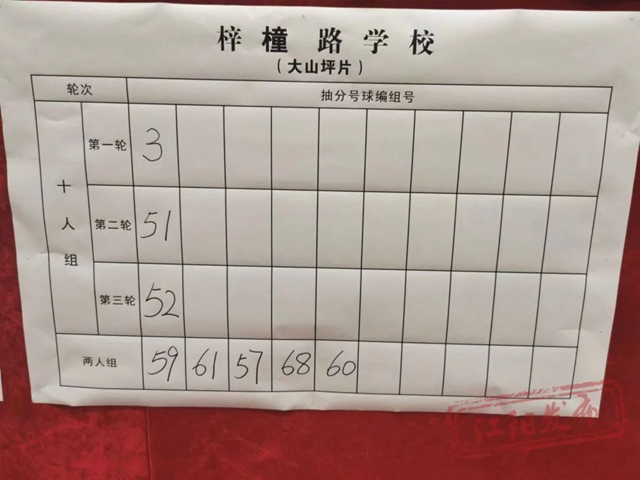 梓橦路学校
（大山坪片）
轮次 抽分号球编组号
十人组
第一轮 3
第二轮 51
第三轮 52
两人组 59 61 57 68 60
江阳发布